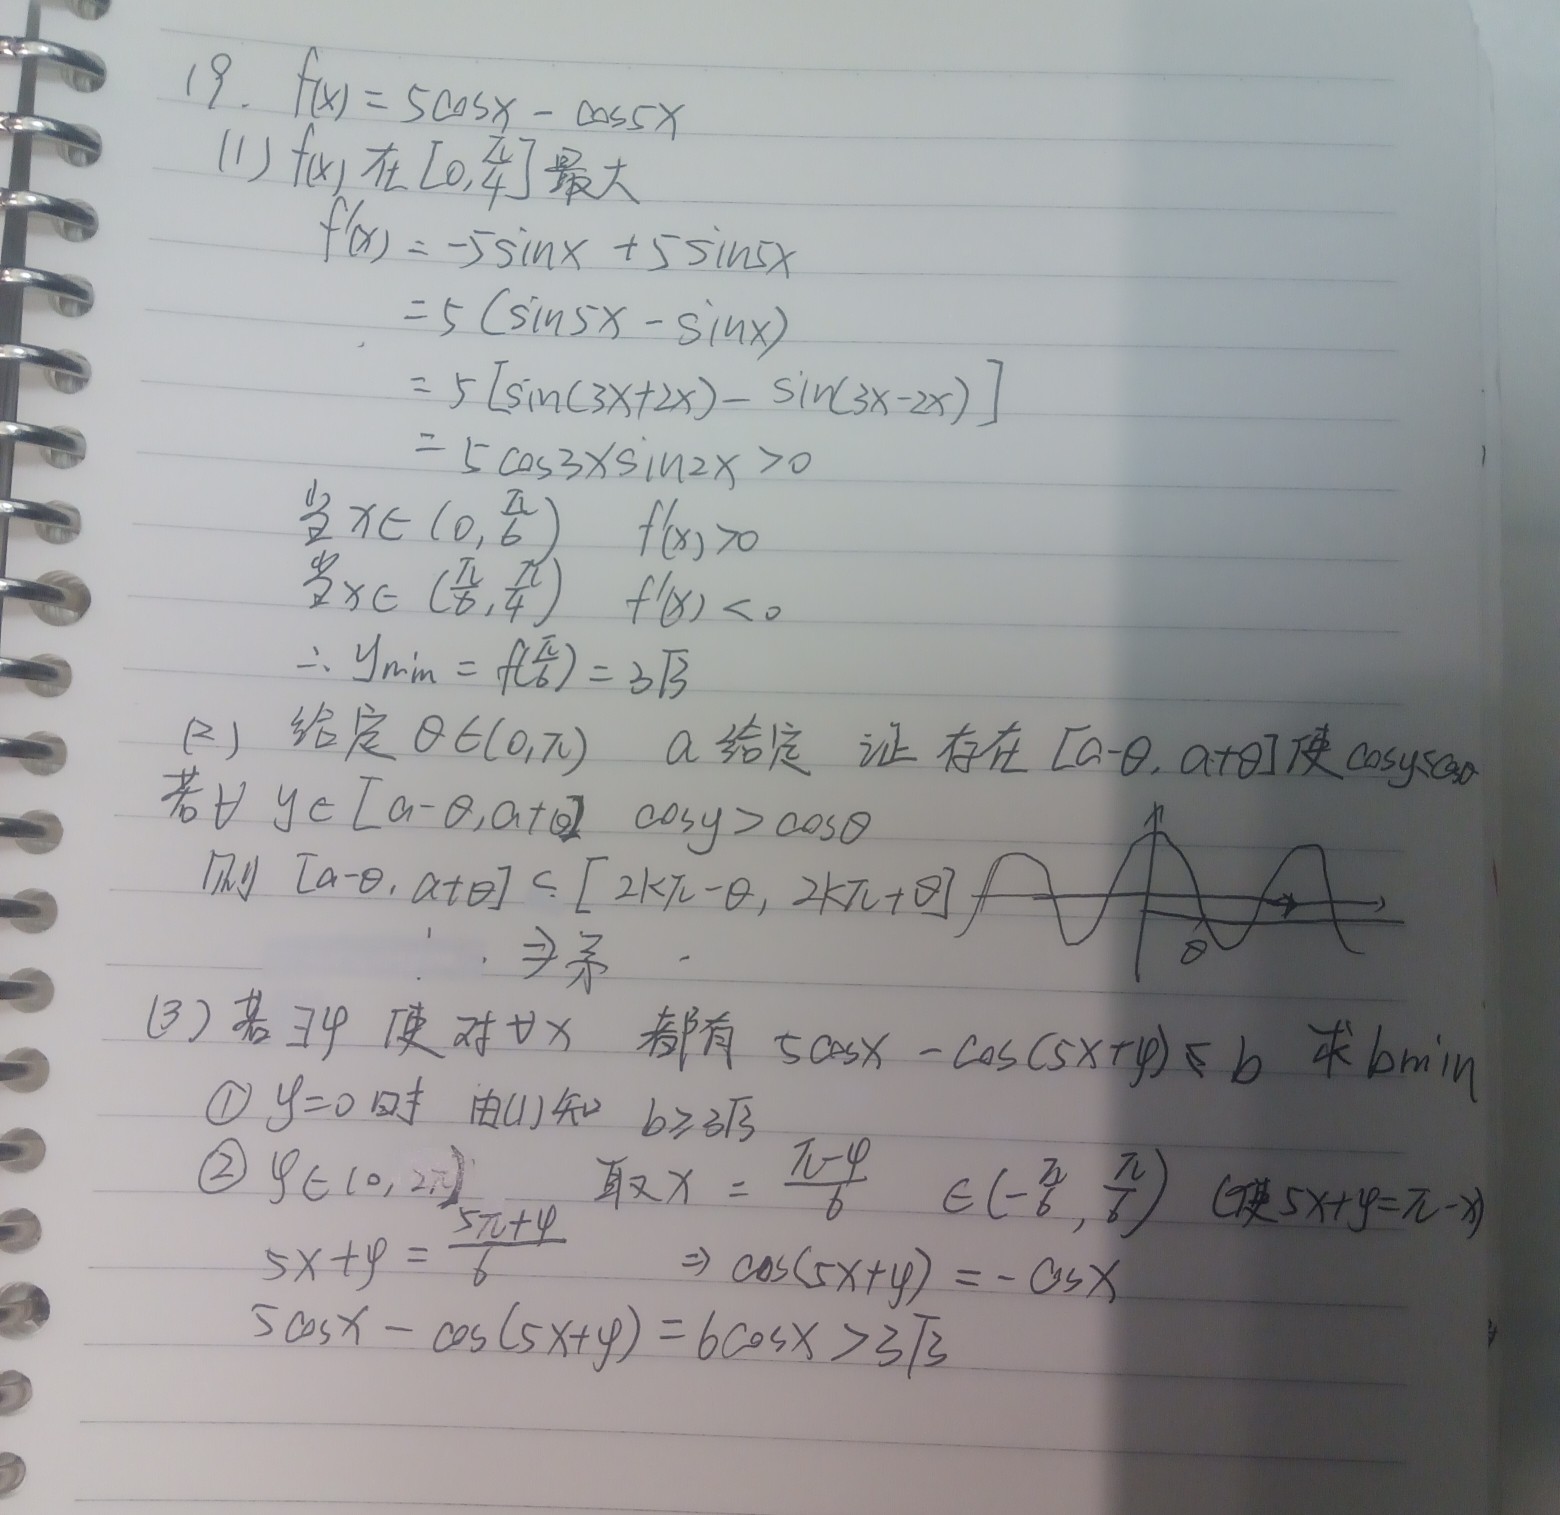 19. f(x) = 5cosx - cos5x
(1) f(x) 在 [0, π/4] 最大
f'(x) = -5sinx + 5sin5x
= 5 (sin5x - sinx)
= 5 [sin(3x+2x) - sin(3x-2x)]
= 5 cos3x sin2x > 0
当 x∈ (0, π/6) f'(x) > 0
当 x∈ (π/6, π/4) f'(x) < 0
∴ ymin = f(π/6) = 3√3
(2) 给定 θ∈(0,π) a 给定 证 存在 [a-θ, a+θ] 使 cosy≤cosθ
若∀ y∈ [a-θ, a+θ] cosy > cosθ
则 [a-θ, a+θ] ⊆ [2kπ-θ, 2kπ+θ]
θ
⇒ 矛
(3) 若 ∃φ 使 对 ∀x 都有 5cosx - cos(5x+φ) ≤ b 求 bmin
① φ=0 时 由(1)知 b≥3√3
② φ∈(0, 2π] 取 x = (π-φ)/6 ∈ (-π/6, π/6) (使 5x+φ=π-x)
5x+φ = (5π+φ)/6 ⇒ cos(5x+φ) = -cosx
5cosx - cos(5x+φ) = 6cosx > 3√3